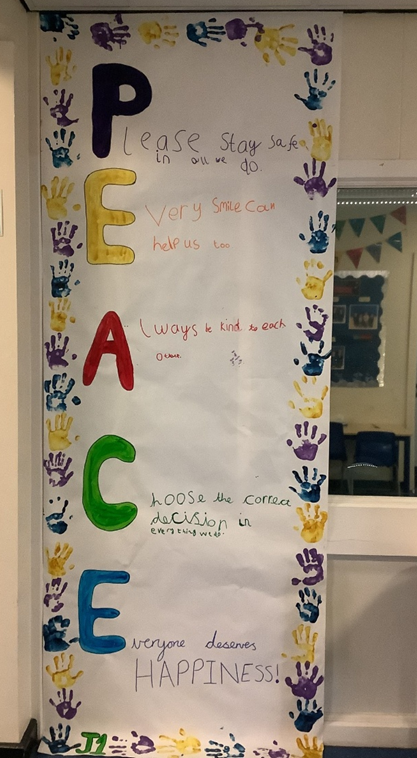 Please Stay Safe
in all we do.
Every Smile Can
help us too.
Always be kind to each
other.
Choose the correct
decision in
everything we do.
Everyone deserves
HAPPINESS!
J1